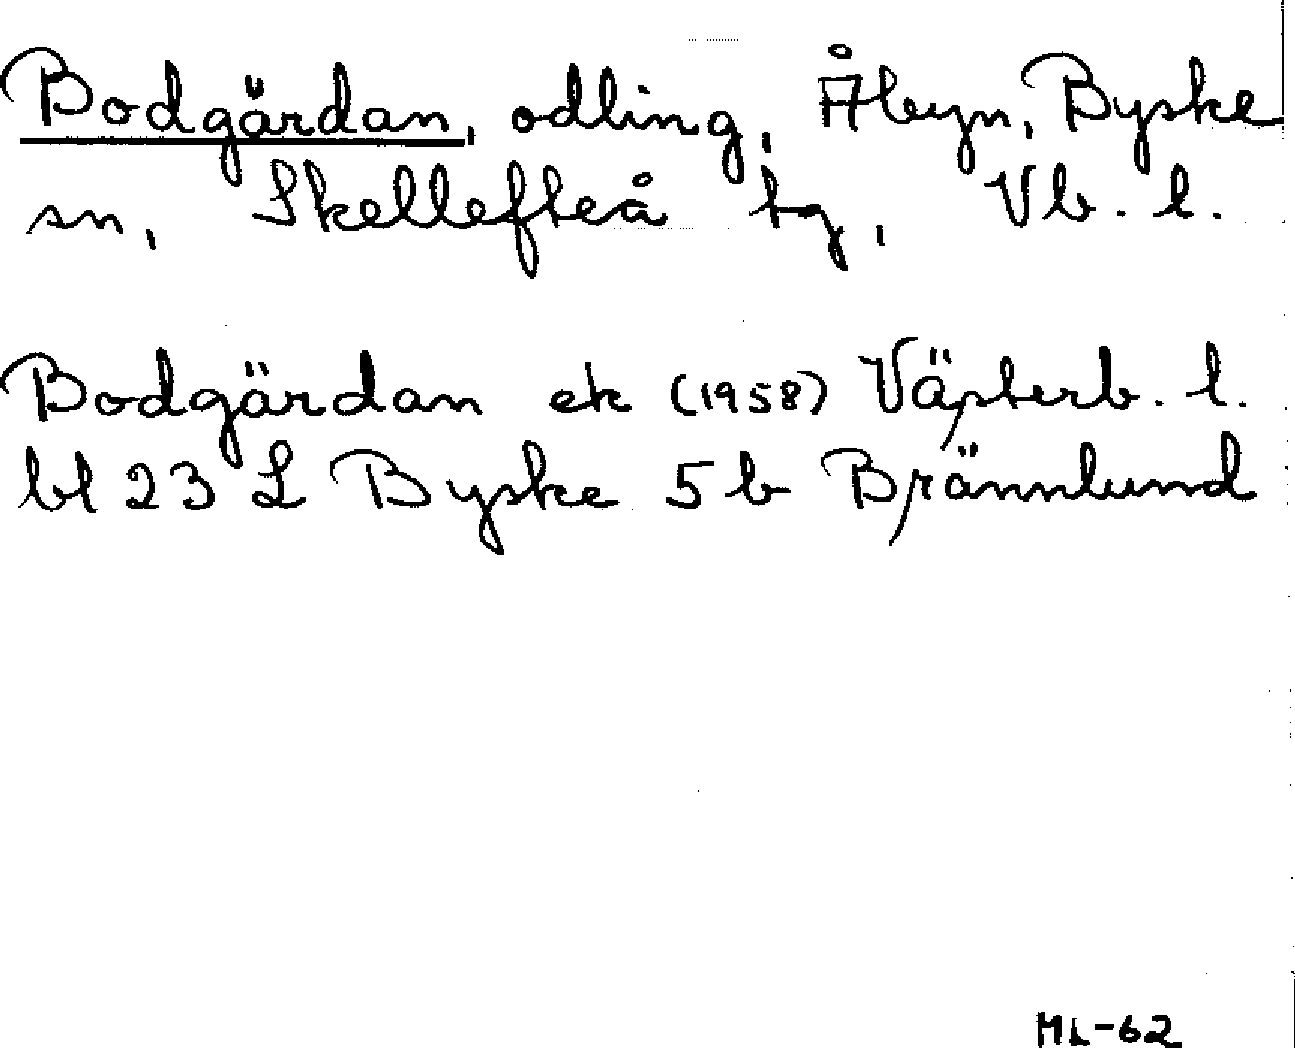 Bodgärdan, odling, Åbyn, Byske
sn, Skellefteå tg, Vb. l.
Bodgärdan ek (1958) Västerb. l.
bl 23 L Byske 5 b Brännlund
ML-62